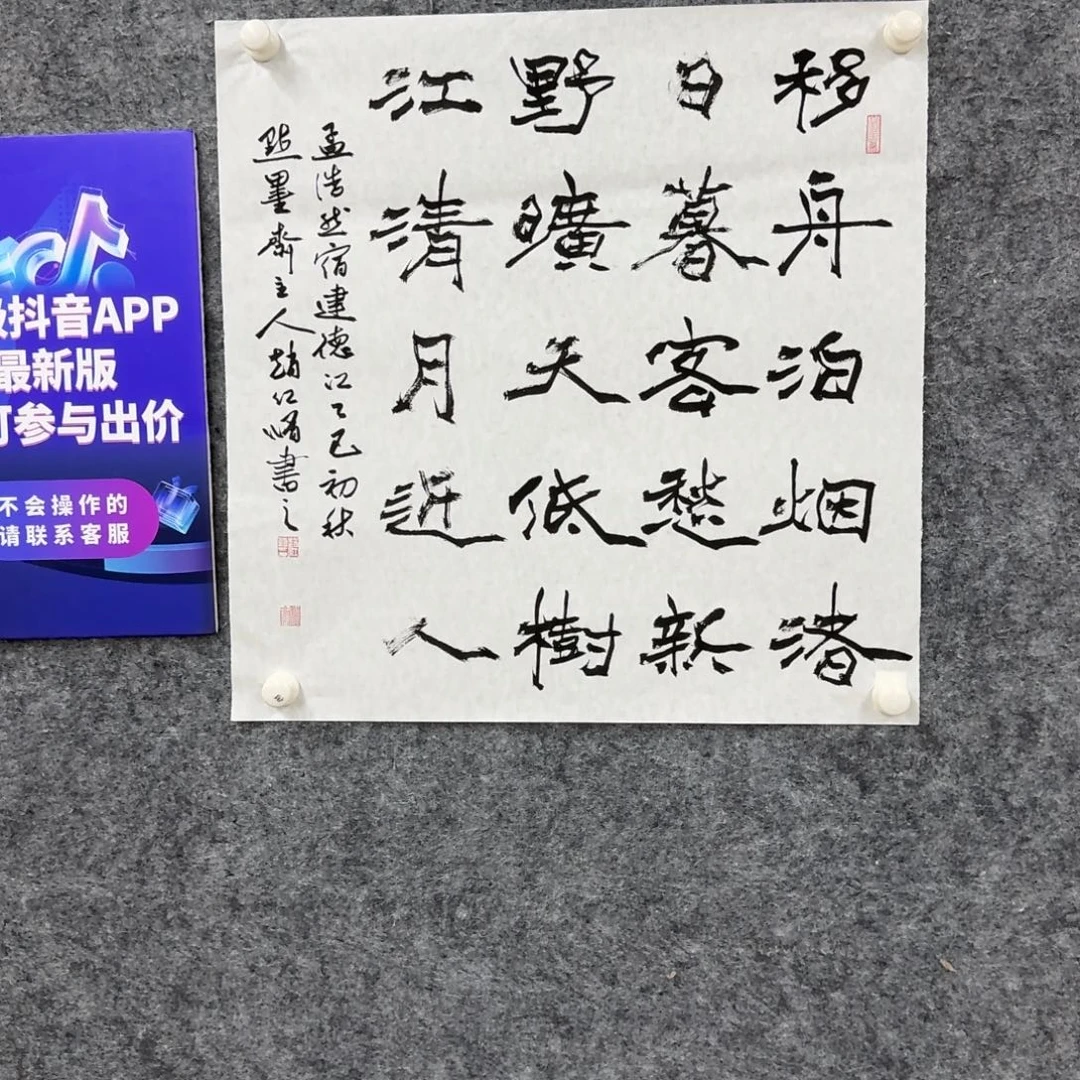 移舟泊烟渚
日暮客愁新
野曠天低樹
江清月近人
孟浩然宿建德江乙巳初秋
點墨齋主人趙仁書之
抖音APP
最新版
可参与出价
不会操作的
请联系客服